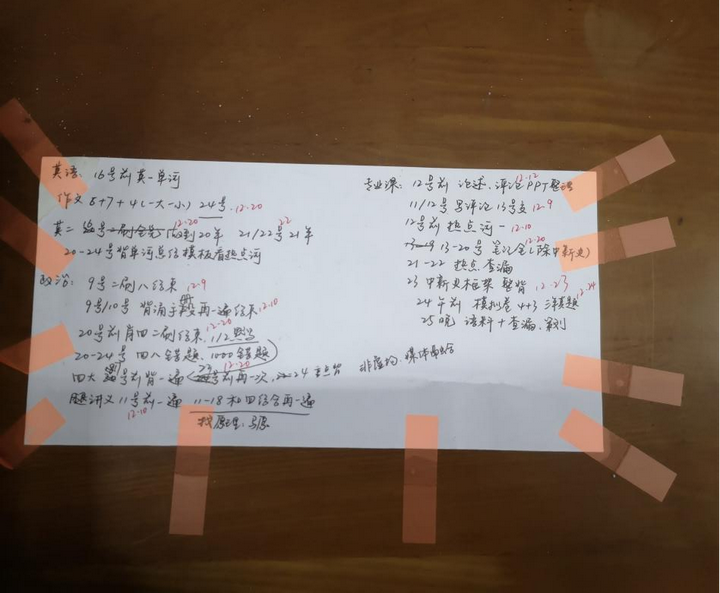 英语: 16号前 英一单词
作文 5+7+4(一大一小) 24号 12-20
英二 到20年 12-20 21/22号 21年 22
20-24号背单词总结模板看热点词
政治: 9号二刷八结束 12-9
9号/10号 背诵手册再一遍结束 12-10
20号前肖四二刷结束, 12-20
20-24号 四八错题, 1000错题
四大 号前背一遍 23号前再一次, 24 12-20
腿讲义 11号前一遍 11-18 和四结合再一遍
12-10 找原理、
专业课: 12号前 论述、评论PPT整 12-12
11/12号 写评论 13号交 12-9
12号前 热点词一 12-10
13-20号 笔记全(除中新史) 12-20
21-22 热点 查漏
23 中新史框架 整背 12-23
24午前 模拟卷 4+3 12-24
25晚 语料+查漏、